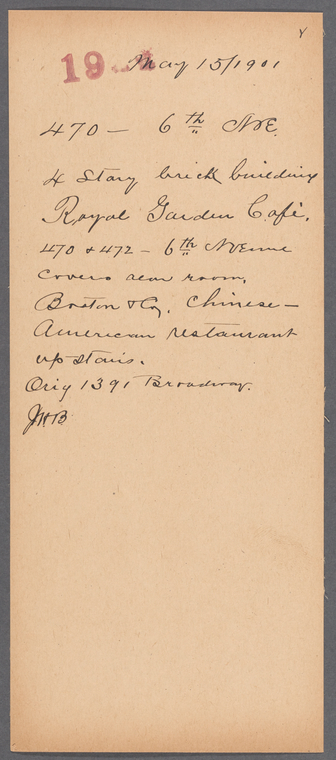 May 15/1901
19
470 — 6th Ave.
4 Story brick building
Royal Garden Café.
470 & 472 — 6th Avenue
covers rear room.
Boston & Co. Chinese —
American restaurant
up stairs.
Orig 1391 Broadway.
JHB